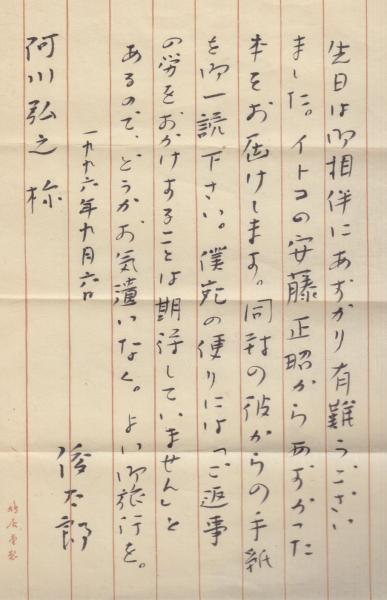 先日は御相伴にあずかり有難うござい
ました。イトコの安藤正昭からあずかった
本をお届けします。同封の彼からの手紙
を御一読下さい。僕宛の便りには「ご返事
の労をおかけすることは期待していません」と
あるので、どうかお気遣いなく。よい御旅行を。
一九九六年九月六日
俊太郎
阿川弘之様